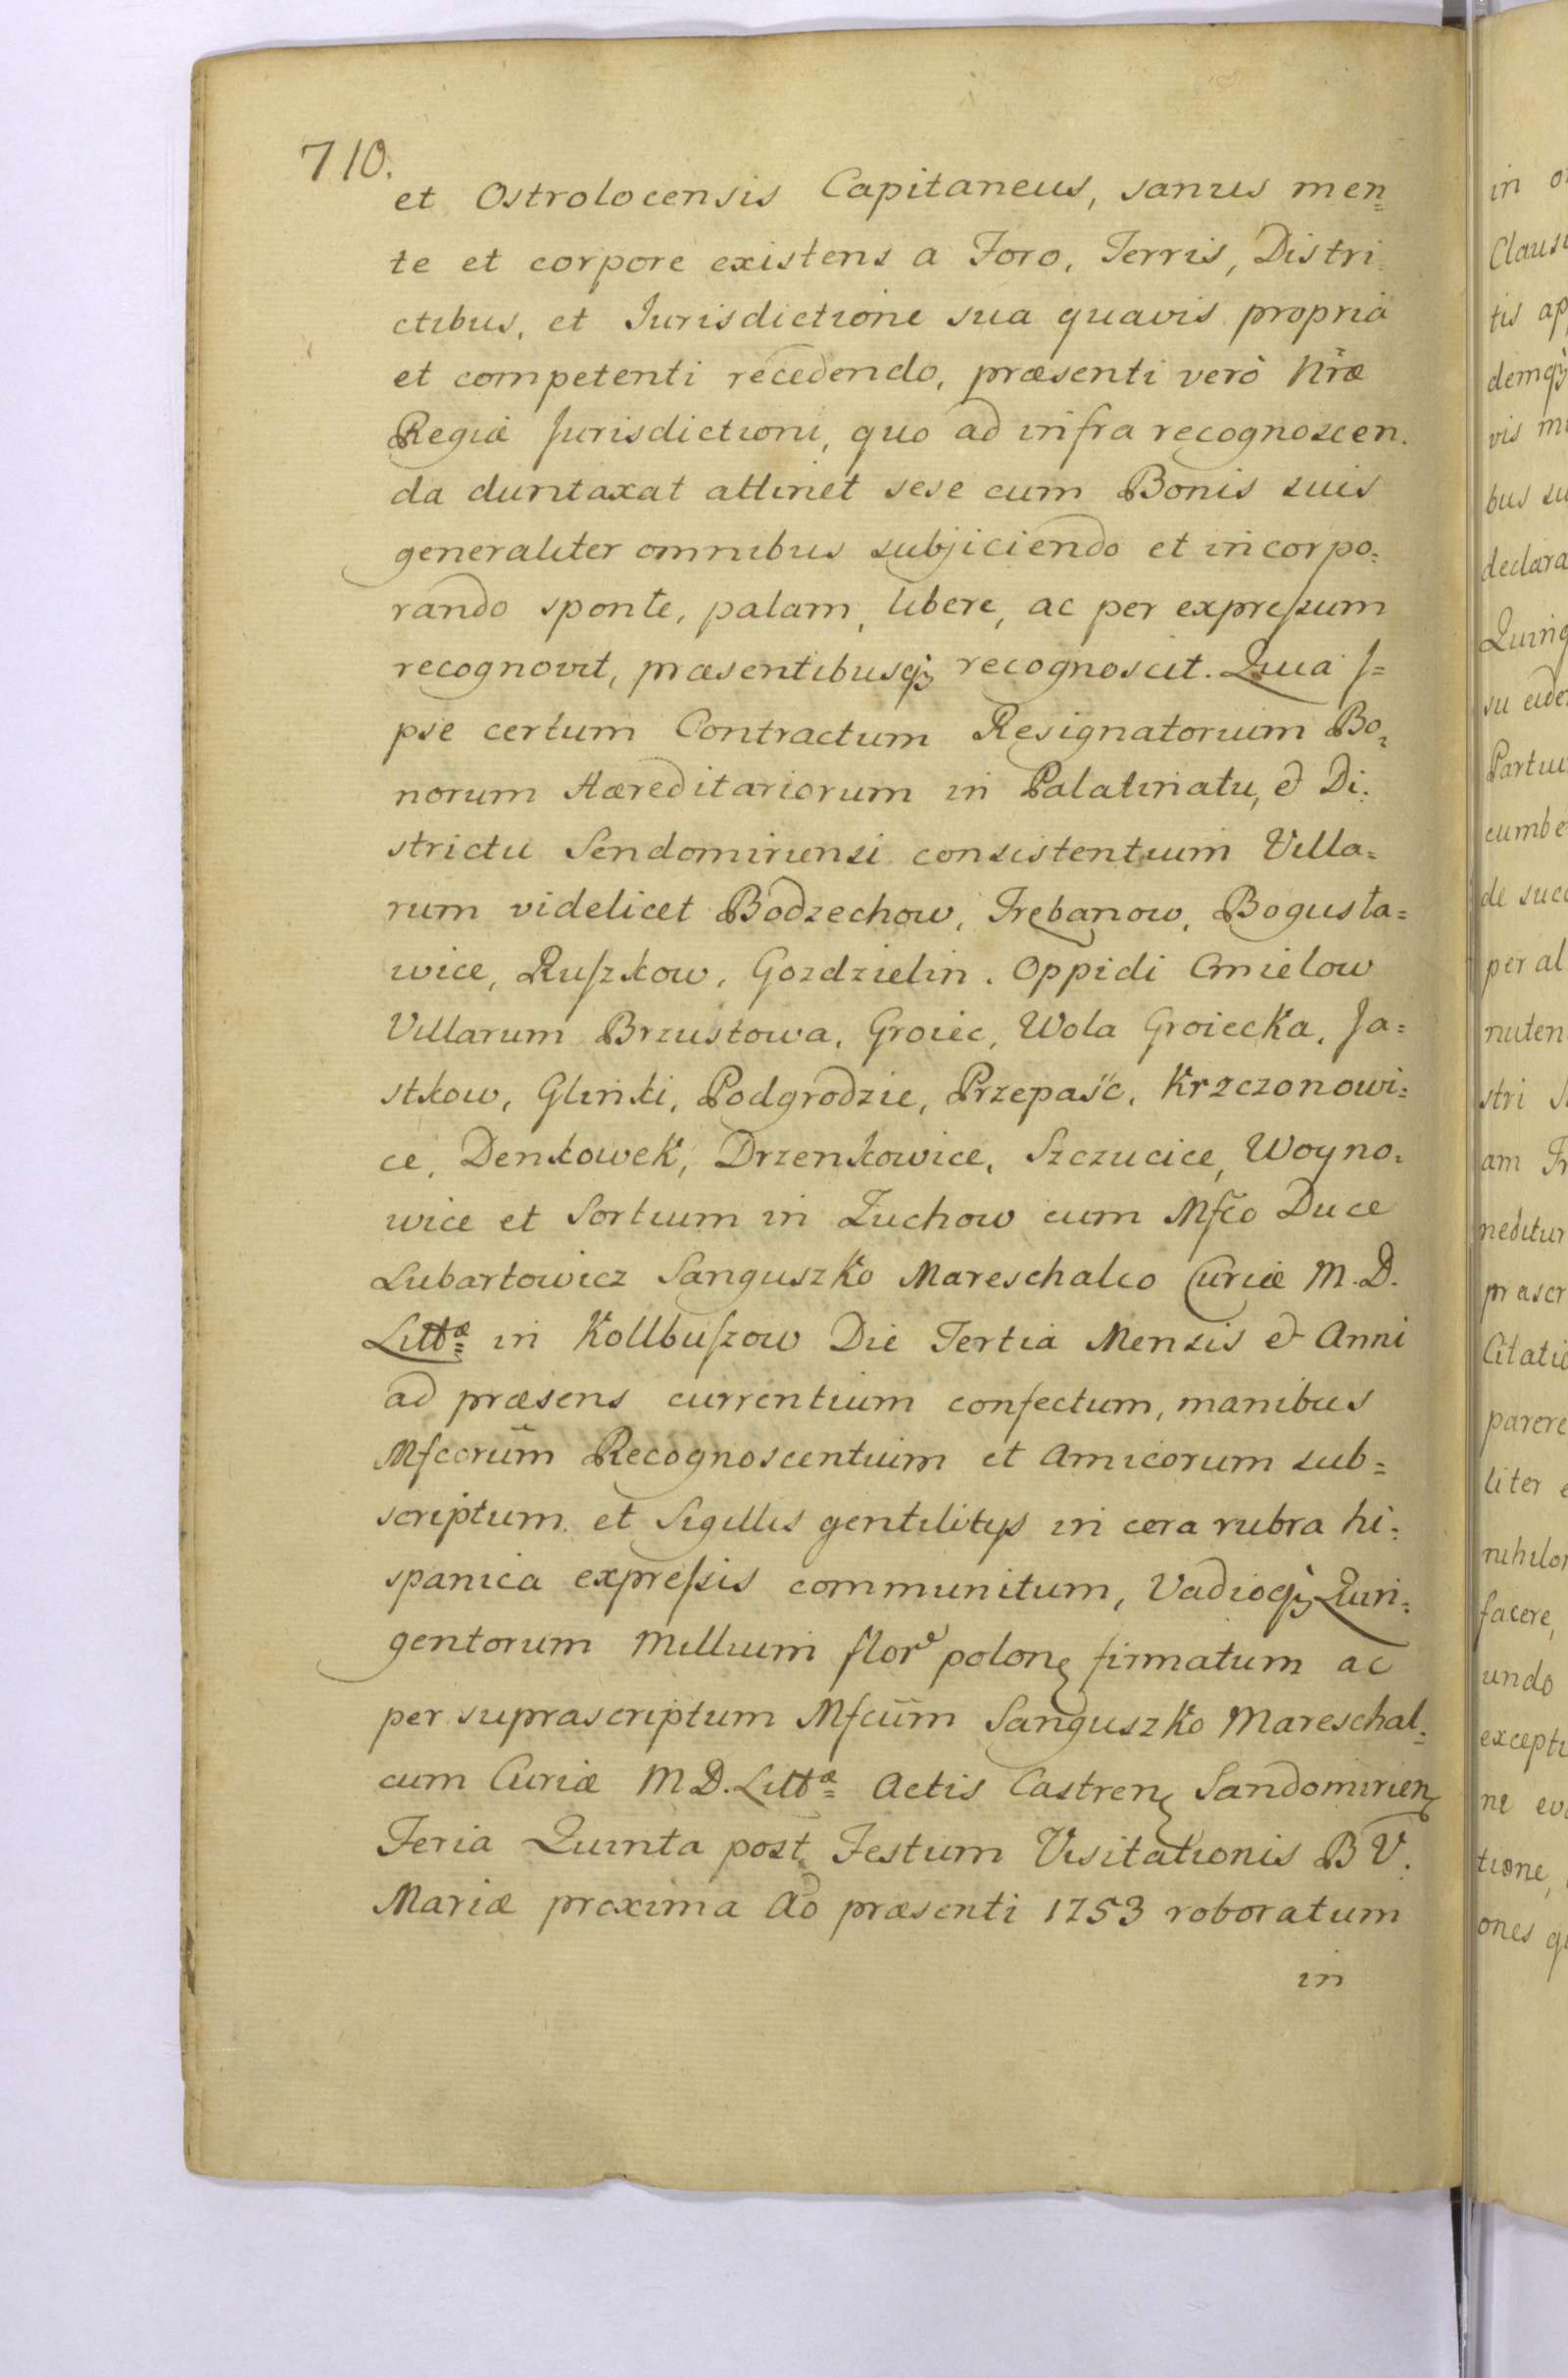 710.
et Ostrolocensis Capitaneus, sanus men=
te et corpore existens a Foro, Terris, Distri
ctibus, et Jurisdictione sua quavis propria
et competenti recedendo, præsenti verò Nr̃æ
Regiæ Jurisdictioni, quo ad infra recognoscen.
da duntaxat attinet sese cum Bonis suis
generaliter omnibus subjiciendo et incorpo=
rando sponte, palam, libere, ac per expreſsum
recognovit, præsentibusq́ʒ recognoscit. Quia J=
pse certum Contractum Resignatorium Bo=
norum Hæreditariorum in Palatinatu, & Di:
strictu Sendomiriensi consistentium Villa=
rum videlicet Bodzechow, Trębanow, Bogusła=
wice, Ruſzkow, Gozdzielin. Oppidi Cmielow
Villarum Brzustowa, Groiec, Wola Groiecka, Ja=
stkow, Glinki, Podgrodzie, Przepaść, Krzczonowi=
ce, Denkowek, Drzenkowice, Szczucice, Woyno=
wice et Sortium in Zuchow cum Mfco Duce
Lubartowicz Sanguszko Mareschalco Curiæ M.D.
Littæ in Kollbuſzow Die Tertia Mensis & Anni
ad præsens currentium confectum, manibus
Mfcorum̃ Recognoscentium et Amicorum sub=
scriptum et Sigillis gentilitijs in cera rubra hi=
spanica expreſsis communitum, Vadioq́ʒ Quin=
gentorum Millium flore polonę firmatum ac
per suprascriptum Mfcum̃ Sanguszko Mareschal=
cum Curiæ M D. Littæ Actis Castrenę Sandomirienę
Feria Quinta post Festum Visitationis B V.
Mariæ proxima Ao præsenti 1753 roboratum
in
in
tis
demq́ʒ
vis
bus
declara
cumbe
de
per al
am
Citatio
parere
liter
facere,
undo
tione,
ones